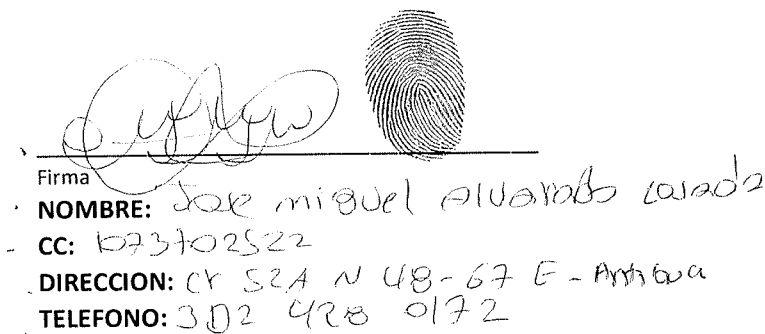 Firma
NOMBRE: Jose miguel Alvarado Losada
CC: 1073702522
DIRECCION: Cr 52A N 48-67 E-Antigua
TELEFONO: 302 428 0172